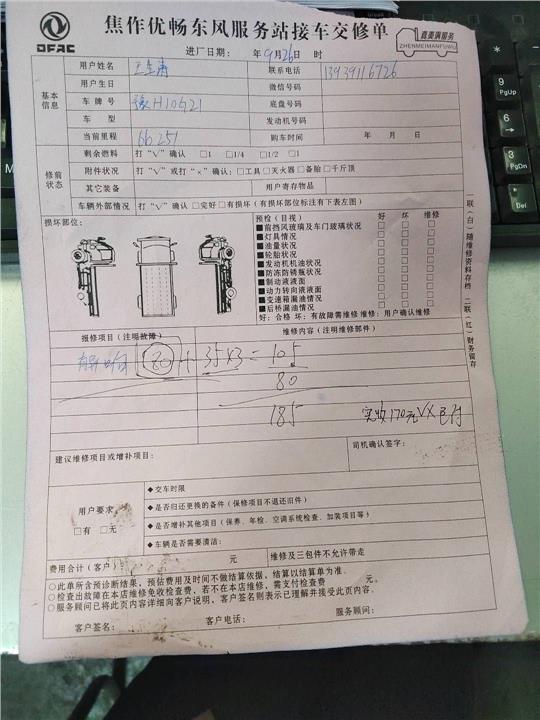 DFAC
焦作优畅东风服务站接车交修单
真麦满服务
ZHENMEIMANFUWU
进厂日期: 年9月26日 时
基本信息
用户姓名 联系电话 13939116726
用户生日 微信号码
车牌号 底盘号码
车型 发动机号码
当前里程 66251 购车时间 年 月 日
修前状态
剩余燃料 打"V"确认 □1 □1/4 □1/2 □1
附件状况 打"V"或打"×"确认:□工具□灭火器□备胎□千斤顶
其它装备 用户寄存物品
车辆外部情况 打"V"确认 □完好□有损坏(有损坏部位标注有下表左图)
损坏部位:
预检(目视) 好 坏 维修
■前挡风玻璃及车门玻璃状况 □ □ □
■灯具情况 □ □ □
■油量状况 □ □ □
■轮胎状况 □ □ □
■发动机机油状况 □ □ □
■防冻防锈瓶状况 □ □ □
■制动液液面 □ □ □
■动力转向液液面 □ □ □
■变速箱漏油情况 □ □ □
■后桥漏油情况 □ □ □
好:合格 坏:有故障需维修 维修:用户确认维修
一联(白)随维修资料存档 二联(红)财务留存
报修项目(注明故障) 维修内容(注明维修部件)
80+35×3=105
80
185
实收170元
建议维修项目或增补项目: 司机确认签字:
用户要求
□有 □无
◆交车时限
◆是否归还更换的备件(保修项目不退还旧件)
◆是否增补其他项目(保养、年检、空调系统检查、加装项目等)
◆车辆是否需要清洁:
费用合计(客户): 元 维修及三包件不允许带走
○此单所含预诊断结果,预估费用及时间不做结算依据,结算以结算单为准.
○检查出故障在本店维修免收检查费,若不在本店维修,需支付检查费 元。
○服务顾问已将此页内容详细向客户说明,客户签名则表示已理解并接受此页内容.
客户签名: 客户电话: 服务顾问:
9
PgUp
6
→
3
PgDn
Del